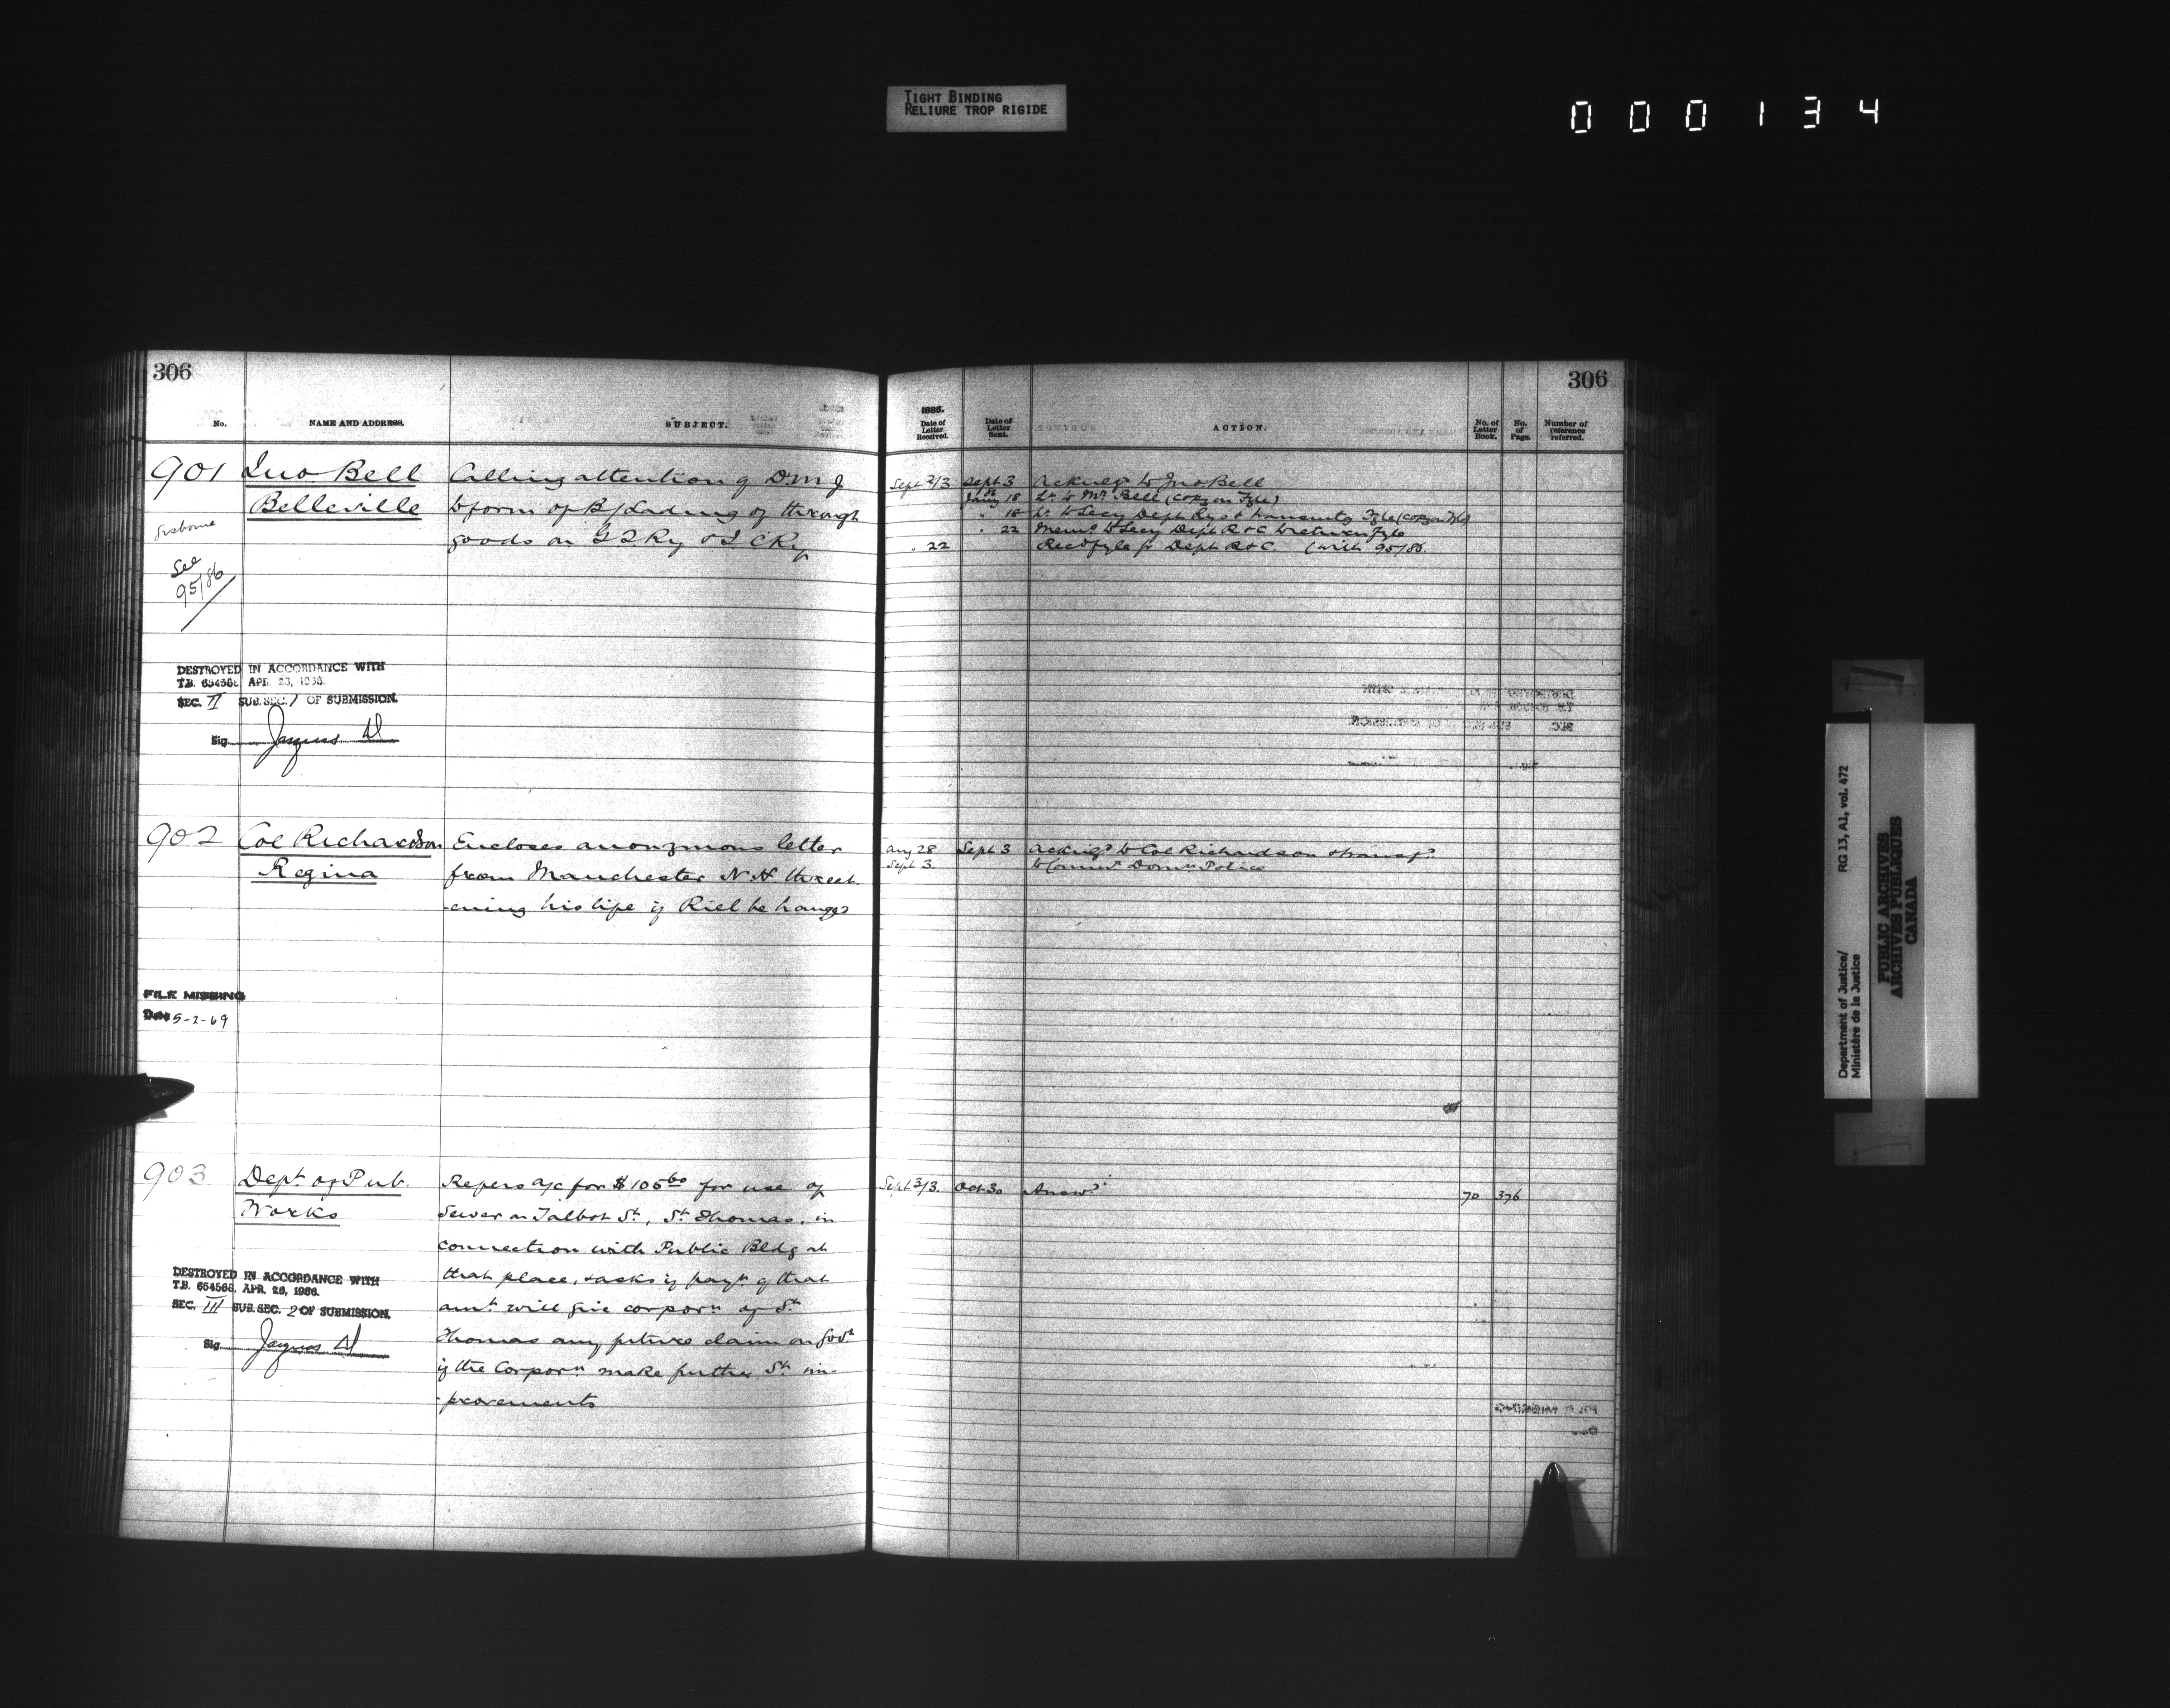 TIGHT BINDING
RELIURE TROP RIGIDE
000134
306
No.
NAME AND ADDRESS.
SUBJECT.
901
Jno Bell
Belleville
Calling attention of D.M.J
to form of B/Lading of through
goods on G T Ry & I C Ry
See
95/86
DESTROYED IN ACCORDANCE WITH
T.B. 654568 APR. 28, 1966.
SEC. II SUB. SEC. 1 OF SUBMISSION.
Sig. Jacques
902
Col Richardson
Regina
Encloses anonymous letter
from Manchester N.H. threat
-ening his life if Riel be hanged
FILE MISSING
Date 5-2-69
903
Dept of Pub.
Works
Refers a/c for $105 60 for use of
Sewer on Talbot St, St Thomas, in
connection with Public Bldg at
that place, & asks if payt of that
amt will give corporn of St
Thomas any future claim on Govt
if the Corporn make further St im-
-provements
DESTROYED IN ACCORDANCE WITH
T.B. 654568, APR. 28, 1966.
SEC. III SUB. SEC. 2 OF SUBMISSION.
Sig. Jacques
306
1885.
Date of Letter Received.
Date of Letter Sent.
ACTION.
No. of Letter Book.
No. of Page.
Number of reference referred.
Sept 2/3 Sept 3 Acknlgd to Jno Bell
Jany 18 Lr to Mr Bell (copy on Fyle)
" 18 Lr to Secy Dept Rys & transmitg Fyle (copy on Fyle)
" 22 Memo to Secy Dept R & C to return Fyle
" 22 Recd fyle fr Dept R & C. (with 95/86.
Aug 28 Sept 3 Acknlgd to Col Richardson & transfd
Sept 3. to Commr Domn Police
Sept 3/3. Oct 30 Answd 70 376
Department of Justice/
Ministère de la Justice
RG 13, A1, vol. 472
PUBLIC ARCHIVES
ARCHIVES PUBLIQUES
CANADA